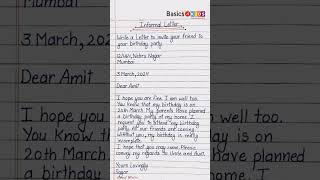 Basics 4 KIDS
Informal Letter
Write a Letter to invite your friend to
your birthday party.
Nehru Nagar
Mumbai
3 March, 2024
Dear Amit
I hope you are fine. I am well too.
You know that my birthday is on
20th March. My Parents have planned
a birthday party at my home. I
request you to attend my birthday
party. All our friends are coming.
Without you, my birthday is really
incomplete.
I hope that you may come. Please
convey my regards to Uncle and Aunt.
Yours Lovingly
Sagar
Mumbai
3 March, 202
Dear Amit
I hope
You know
20th March
a birthday
well too.
day is on
planned
home. I